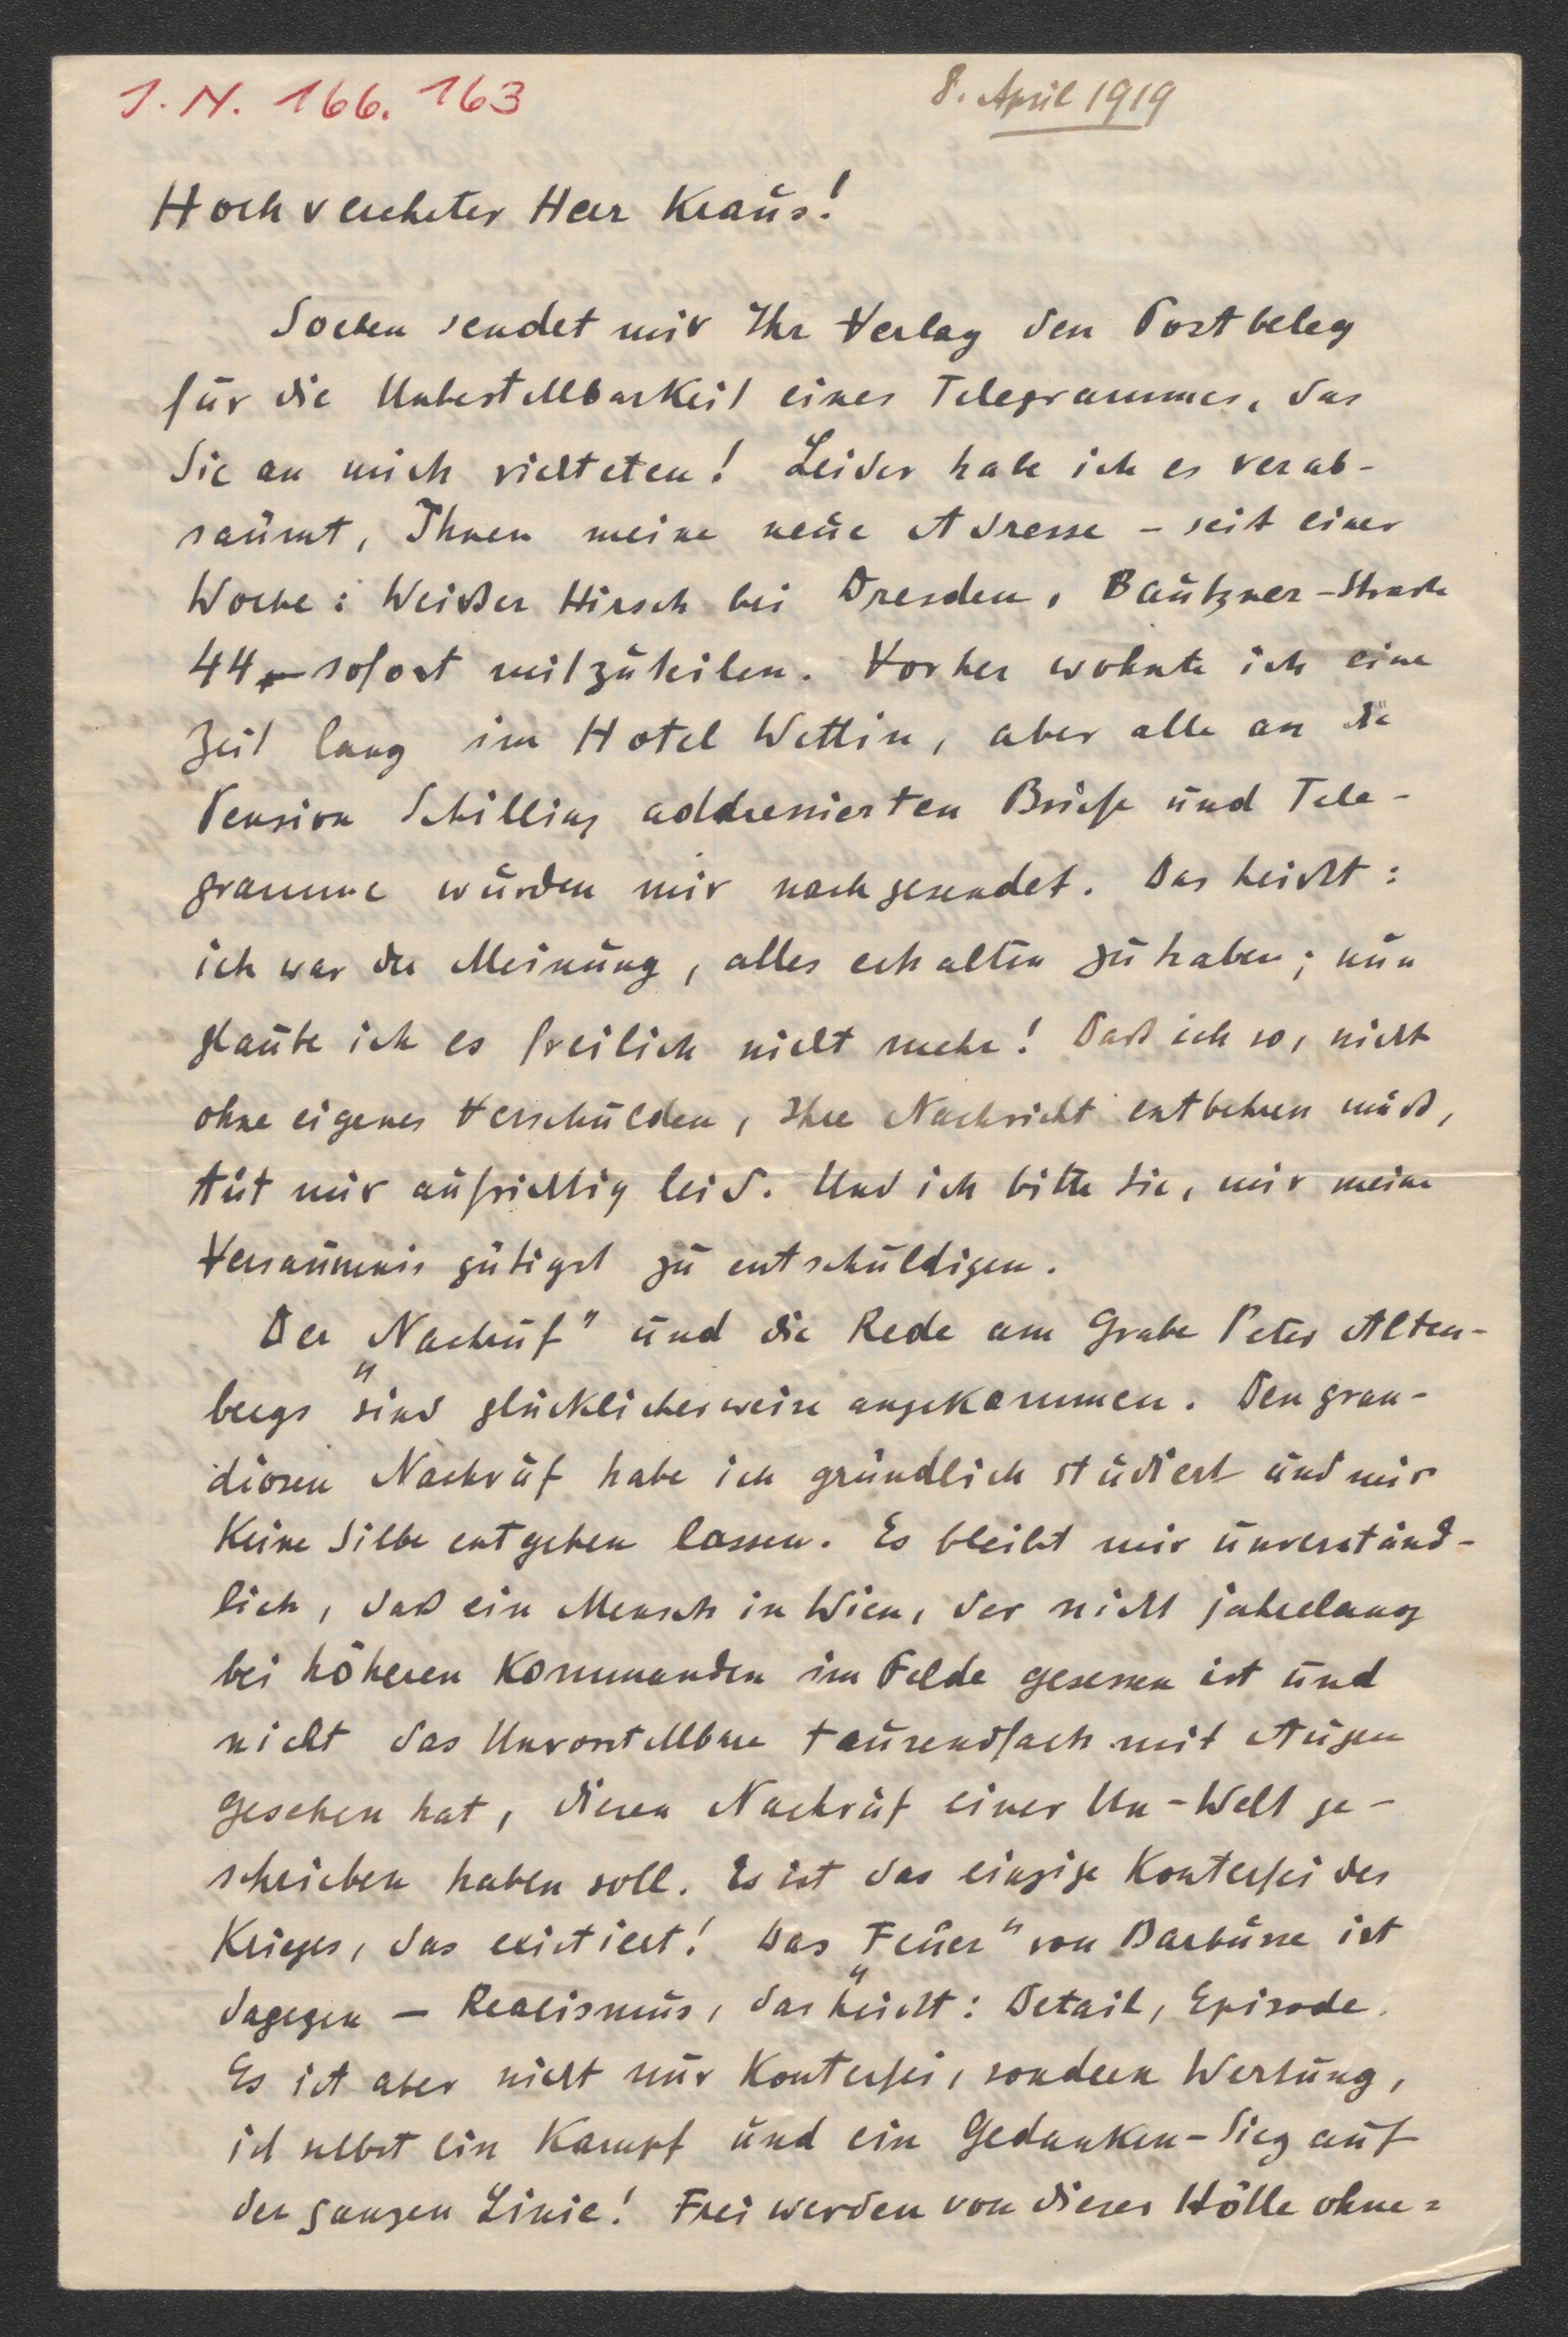 I. N. 166. 163
8. April 1919
Hochverehrter Herr Kraus!
Soeben sendet mir Ihr Verlag den Postbeleg
für die Unbestellbarkeit eines Telegrammes, das
Sie an mich richteten! Leider habe ich es verab-
säumt, Ihnen meine neue Adresse – seit einer
Woche: Weißer Hirsch bei Dresden, Bautzner-Straße
44 – sofort mitzuteilen. Vorher wohnte ich eine
Zeit lang im Hotel Wettin, aber alle an die
Pension Schilling addressierten Briefe und Tele-
gramme wurden mir nachgesendet. Das heißt:
ich war der Meinung, alles erhalten zu haben; nun
glaube ich es freilich nicht mehr! Daß ich so, nicht
ohne eigenes Verschulden, Ihre Nachricht entbehren muß,
tut mir aufrichtig leid. Und ich bitte Sie, mir meine
Versäumnis gütigst zu entschuldigen.
Der „Nachruf" und die Rede am Grabe Peter Alten-
bergs sind glücklicherweise angekommen. Den gran-
diosen Nachruf habe ich gründlich studiert und mir
keine Silbe entgehen lassen. Es bleibt mir unverständ-
lich, daß ein Mensch in Wien, der nicht jahrelang
bei höheren Kommanden im Felde gesessen ist und
nicht das Unvorstellbare tausendfach mit Augen
gesehen hat, diesen Nachruf einer Un-Welt ge-
schrieben haben soll. Es ist das einzige Konterfei des
Krieges, das existiert! Das „Feuer" von Barbusse ist
dagegen – Realismus, das heißt: Detail, Episode.
Es ist aber nicht nur Konterfei, sondern Wertung,
ist selbst ein Kampf und ein Gedanken-Sieg auf
der ganzen Linie! Frei werden von dieser Hölle ohne=